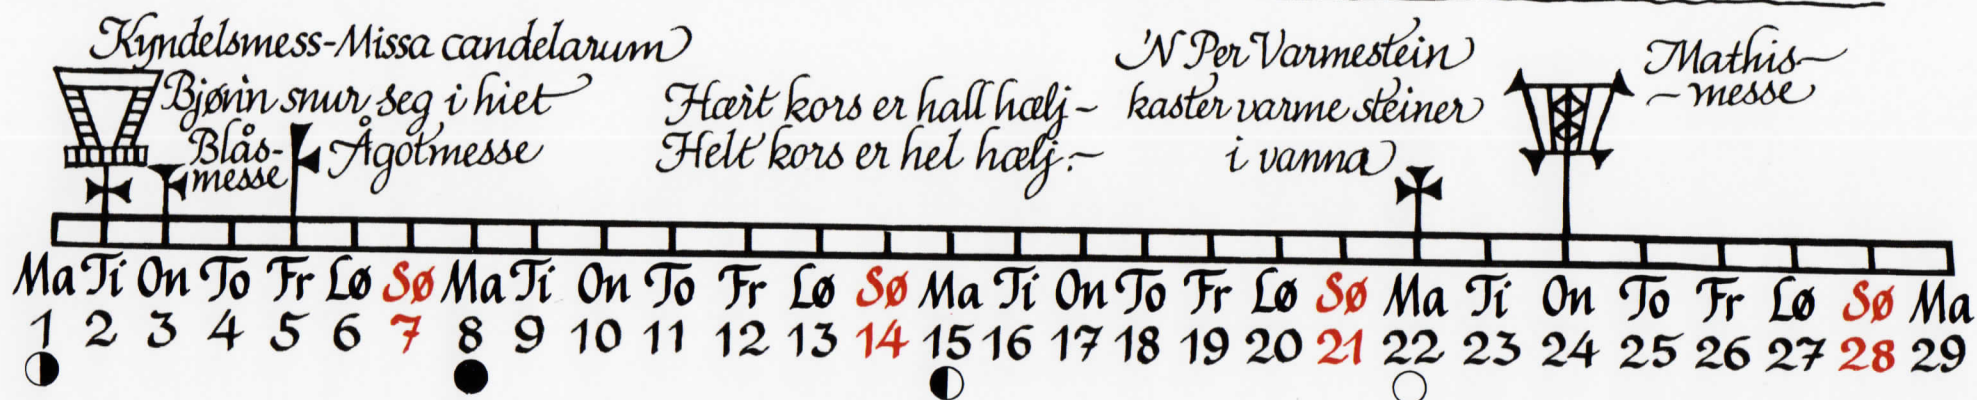 Kyndelsmess-Missa candelarum
Bjørin snur seg i hiet
Blås-
messe
Ågotmesse
Hært kors er hall hælj-
Helt kors er hel hælj.-
'N Per Varmestein
kaster varme steiner
i vanna
Mathis-
-messe
Ma Ti On To Fr Lø Sø Ma Ti On To Fr Lø Sø Ma Ti On To Fr Lø Sø Ma Ti On To Fr Lø Sø Ma
1 2 3 4 5 6 7 8 9 10 11 12 13 14 15 16 17 18 19 20 21 22 23 24 25 26 27 28 29